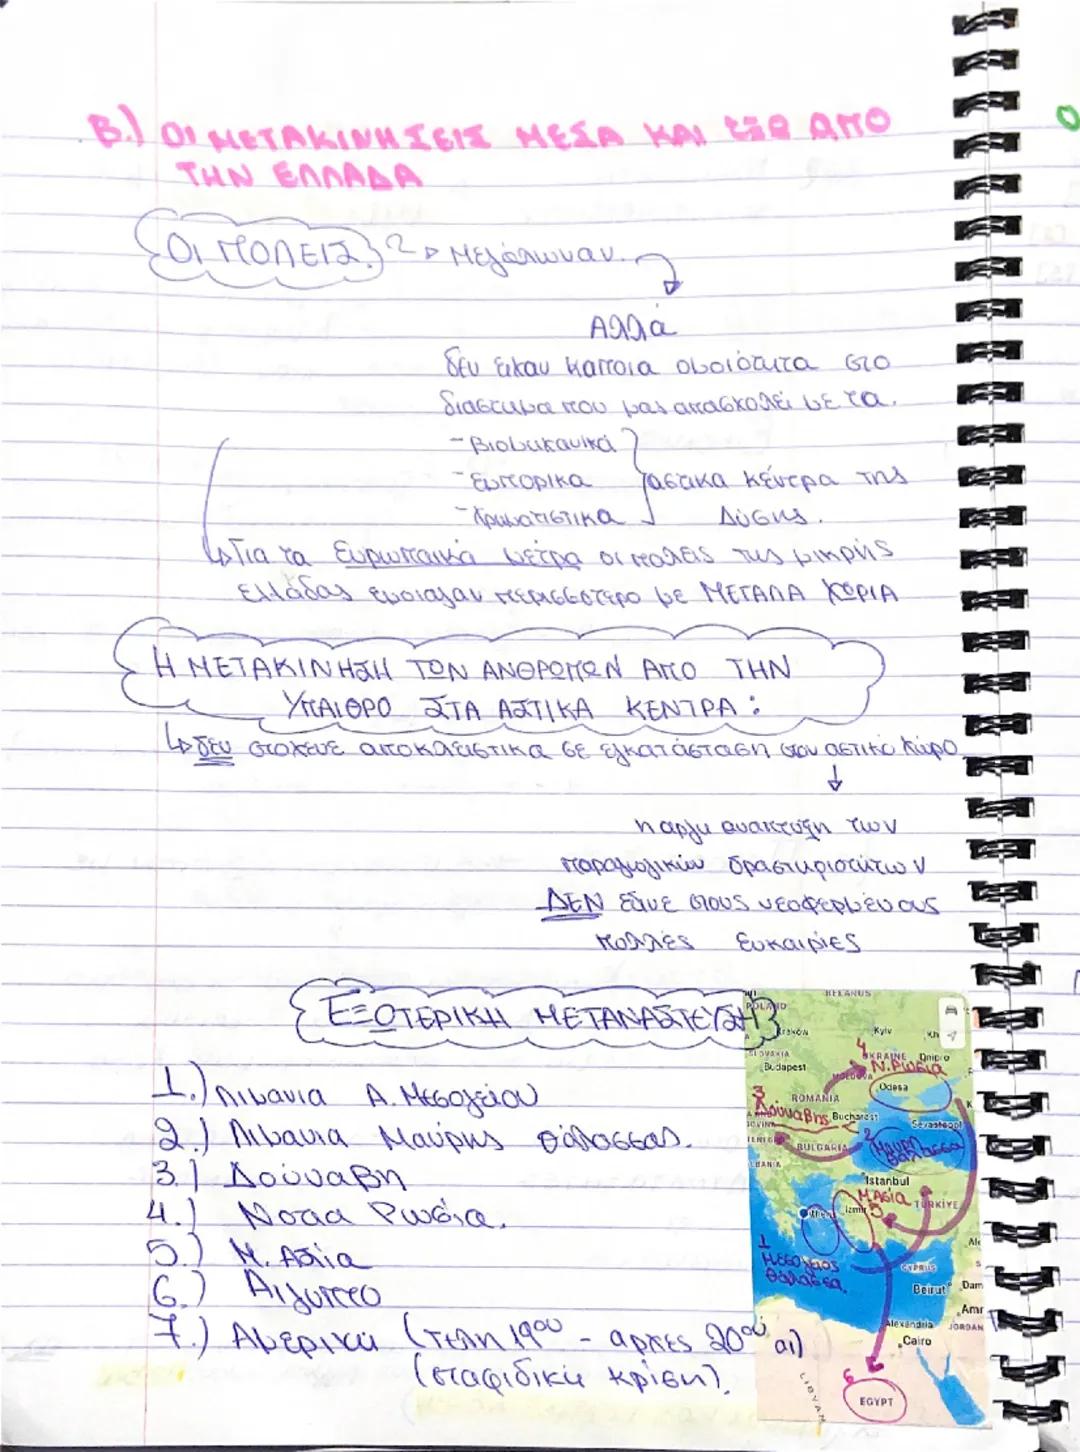 Β.) ΟΙ ΜΕΤΑΚΙΝΗΣΕΙΣ ΜΕΣΑ ΚΑΙ ΕΞΩ ΑΠΟ
ΤΗΝ ΕΛΛΑΔΑ
ΟΙ ΠΟΛΕΙΣ → Μεγάλωναν.
Αλλά
δεν είχαν καποια ομοιότητα στο
διαστημα που μας απασχολεί με τα.
- Βιομηχανικά
- εμπορικα αστικα κέντρα της
- Χρηματιστικα Δύσης.
↳ Για τα Ευρωπαικά μετρα οι πολεις της μικρής
Ελλάδας εμοιαζαν περισσοτερο με ΜΕΓΑΛΑ ΧΩΡΙΑ
Η ΜΕΤΑΚΙΝΗΣΗ ΤΩΝ ΑΝΘΡΩΠΩΝ ΑΠΟ ΤΗΝ
ΥΠΑΙΘΡΟ ΣΤΑ ΑΣΤΙΚΑ ΚΕΝΤΡΑ :
↳ δεν στοχευε αποκλειστικα σε εγκατάσταση στον αστικό χώρο
η αργη αναπτυξη των
παραγωγικών δραστηριοτήτων
ΔΕΝ έδινε στους νεοφερμένους
πολλές ευκαιρίες
ΕΞΩΤΕΡΙΚΗ ΜΕΤΑΝΑΣΤΕΥΣΗ
1.) Λιμανια Α. Μεσογείου
2.) Λιμανια Μαύρης θάλασσας.
3.) Δούναβη
4.) Νοτια Ρωσία.
5.) Μ. Ασία
6.) Αίγυπτο
7.) Αμερικη (τελη 19ου - αρχες 20ου αι)
(σταφιδικη κριση).
BELARUS
POLAND
Kraków
Kyiv
Kh
SLOVAKIA
4
UKRAINE
Dnipro
Budapest
Ν. Ρωσια
MOLDOVA
Odesa
3
ROMANIA
Δούναβης
Bucharest
Sevastopol
2
BULGARIA
Μαυρη
θάλασσα
Istanbul
Μ. Ασία
TÜRKİYE
Athens
Izmir
5
1
Μεσόγειος
Θάλασσα
CYPRUS
Beirut
Dam
Amr
Alexandria
JORDAN
Cairo
6
EGYPT
LIBYAN